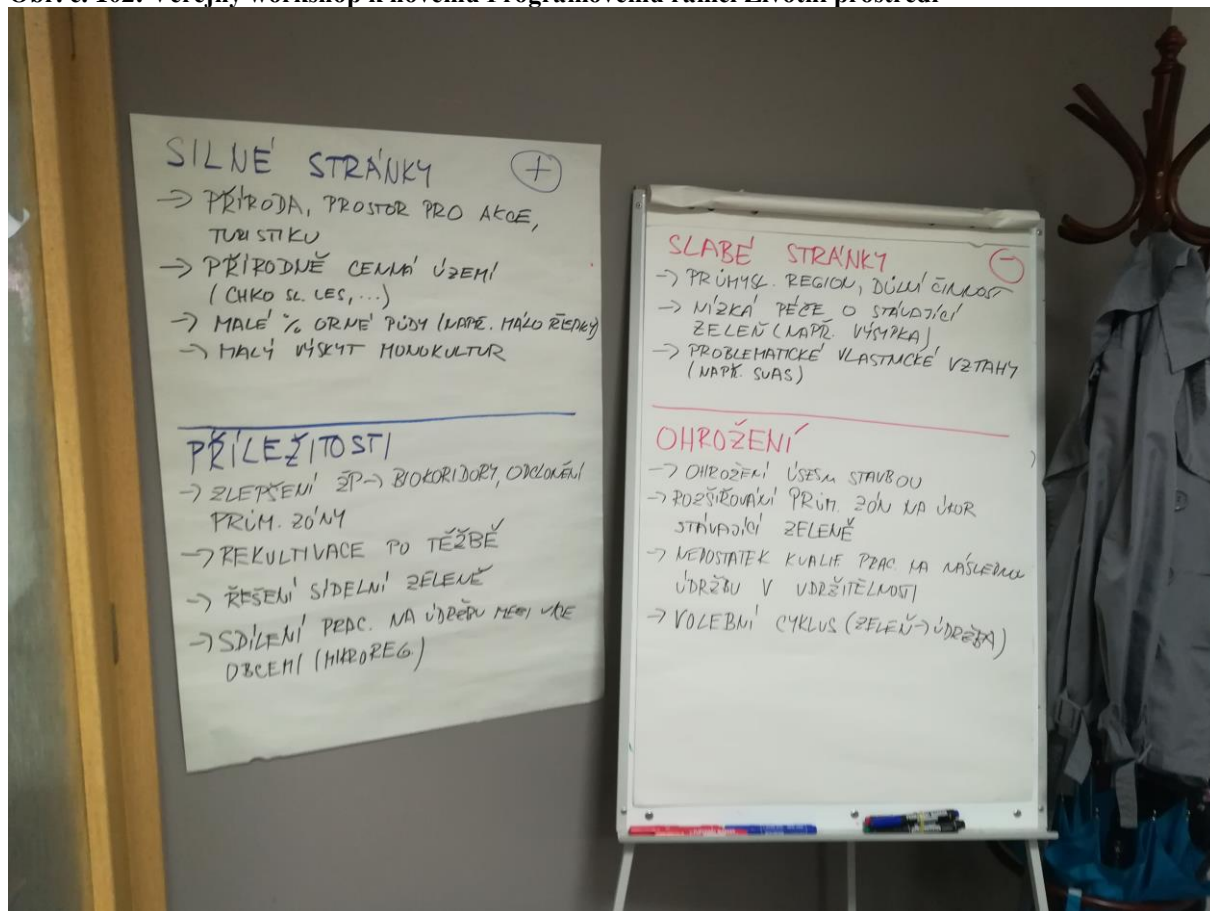 Obr. č. 102: Veřejný workshop k novému Programovému rámci Životní prostředí
SILNÉ STRÁNKY +
→ PŘÍRODA, PROSTOR PRO AKCE,
TURISTIKU
→ PŘÍRODNĚ CENNÁ ÚZEMÍ
(CHKO SL. LES, ...)
→ MALÉ % ORNÉ PŮDY (NAPŘ. MÁLO ŘEPKY)
→ MALÝ VÝSKYT MONOKULTUR
PŘÍLEŽITOSTI
→ ZLEPŠENÍ ŽP → BIOKORIDORY, ODCLONĚNÍ
PRŮM. ZÓNY
→ REKULTIVACE PO TĚŽBĚ
→ ŘEŠENÍ SÍDELNÍ ZELENĚ
→ SDÍLENÍ PRAC. NA ÚDRŽBU MEZI VÍCE
OBCEMI (MIKROREG.)
SLABÉ STRÁNKY -
→ PRŮMYSL. REGION, DŮLNÍ ČINNOST
→ NÍZKÁ PÉČE O STÁVAJÍCÍ
ZELEŇ (NAPŘ. VÝSYPKA)
→ PROBLEMATICKÉ VLASTNICKÉ VZTAHY
(NAPŘ. SUAS)
OHROŽENÍ
→ OHROŽENÍ STAVBOU
→ ROZŠIŘOVÁNÍ PRŮM. ZÓN NA ÚKOR
STÁVAJÍCÍ ZELENĚ
→ NEDOSTATEK KVALIF. PRAC. NA NÁSLEDNOU
ÚDRŽBU V UDRŽITELNOSTI
→ VOLEBNÍ CYKLUS (ZELEŇ → ÚDRŽBA)